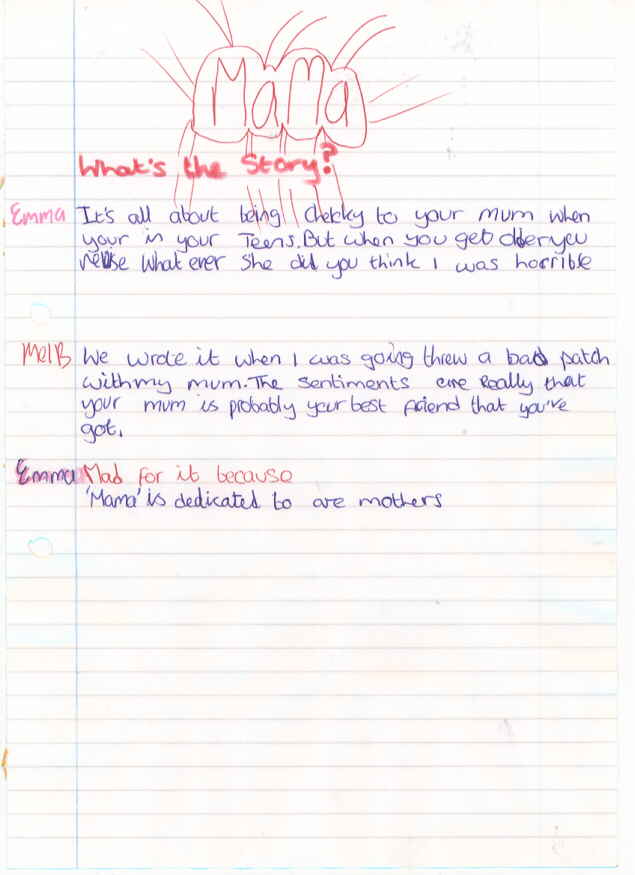 MaMa
What's the Story?
Emma It's all about being cheeky to your mum when
your in your Teens. But when you get older you
What ever she did you think I was horrible
Mel B We wrote it when I was going threw a bad patch
with my mum. The sentiments are Really that
your mum is probably your best friend that you've
got.
Emma Mad for it because
'Mama' is dedicated to are mothers